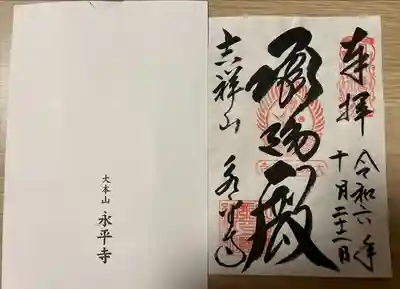 奉拝
令和六年
十月二十二日
承陽殿
吉祥山
永平寺
大本山
永平寺